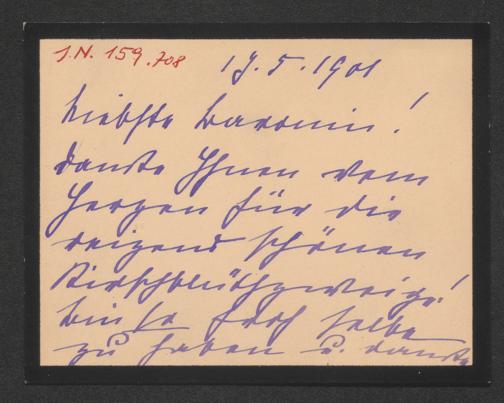 J.N. 159.708
17.5.1901
Liebste Baronin!
danke Ihnen vom
Herzen für die
reizend schönen
Kirschblüthzweige!
bin so froh selbe
zu haben u. danke